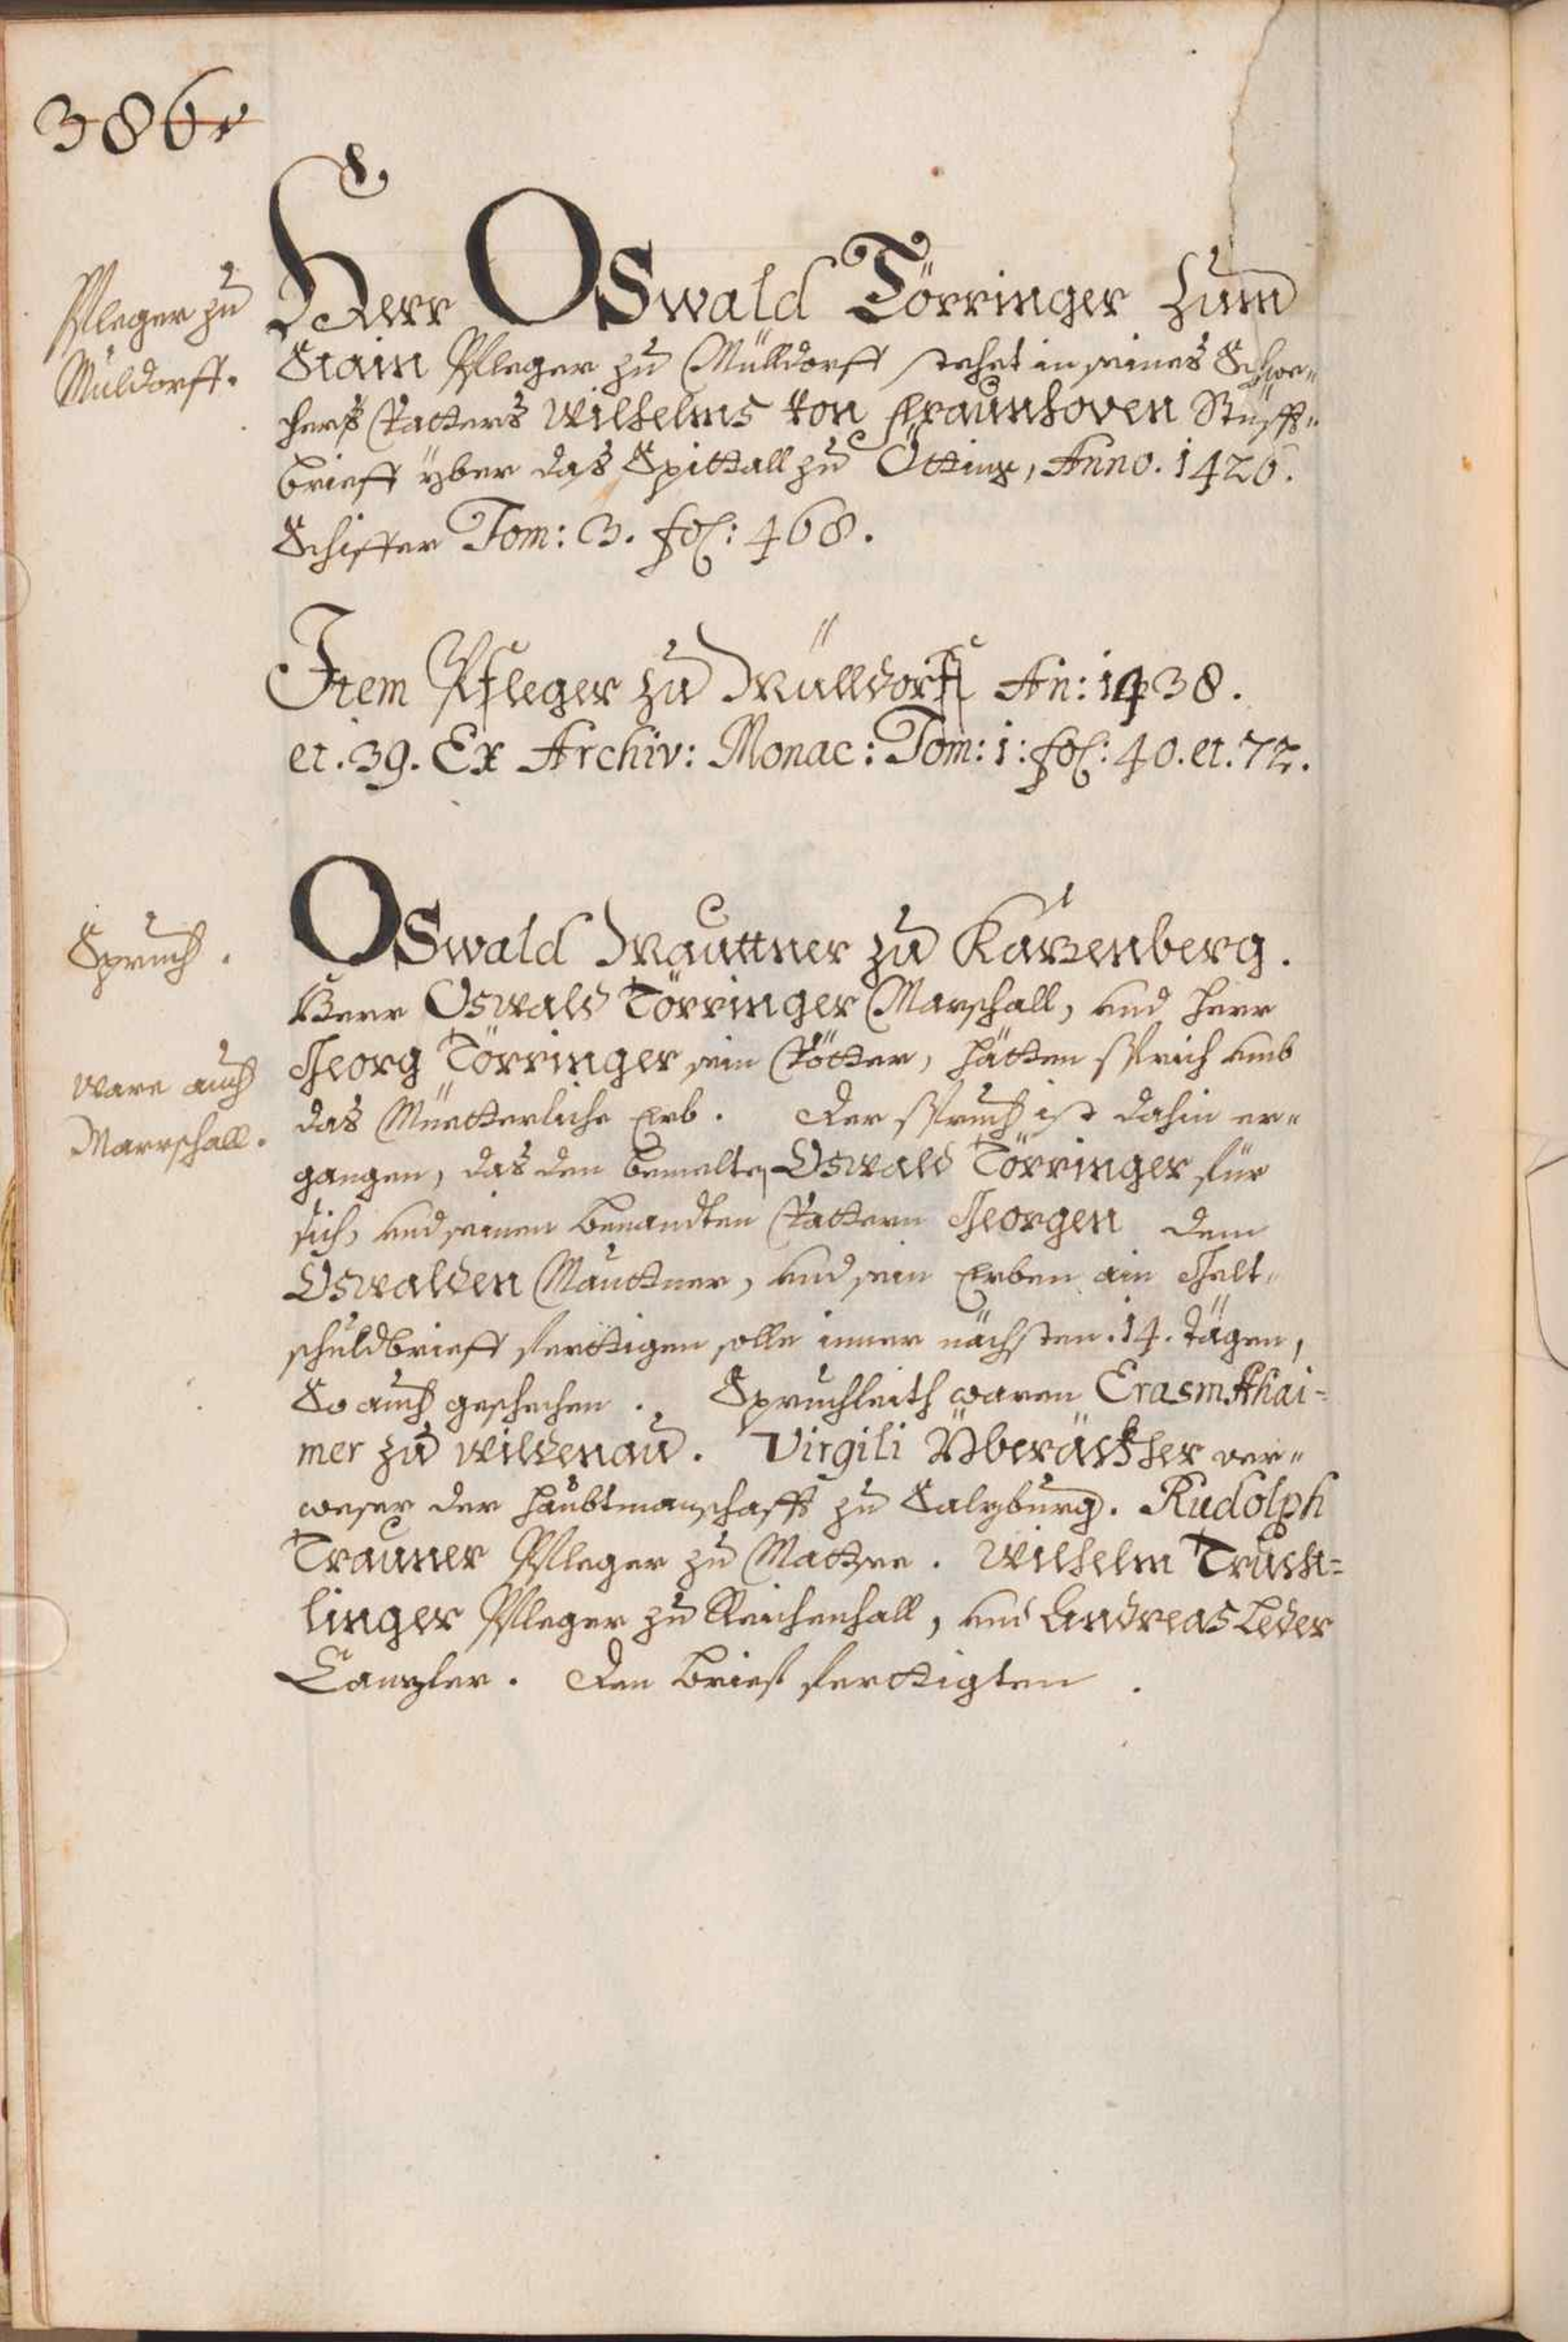 386v
Pfleger zu
Müldorff.
Herr Oswald Törringer zum
Stain Pfleger zu Mülldorff stehet in seines Schwe„
hers Vatters Wilhelms von Fraunhoven Stüfft„
brieff yber das Spittall zu Ötting, Anno. 1426.
Schiffer Tom: 3. fol: 468.
Item Pfleger zu Mülldorff An: 1438.
et. 39. Ex Archiv: Monac: Tom: 1: fol: 40. et. 72.
Spruch.
Oswald Mauttner zu Kazenberg.
Herr Oswald Törringer Marschall, und Herr
Georg Törringer sein Vötter, hätten sprich umb
ware auch
Marrschall.
das Müetterliche Erb. Der spruch ist dahin er„
gangen, das den bemelten Oswald Törringer für
sich, und seinen benandten Vattern Georgen dem
Oswalden Mauttner, und sein Erben ain Gelt„
schuldbrieff ferttigen solle inner nächsten. 14. Tägen,
So auch geschehen. Spruchleith waren Erasm. Ahai=
mer zu Wildenau. Virgili Überäckher ver„
weser der Haubtmanschafft zu Salzburg. Rudolph
Trauner Pfleger zu Mattsee. Wilhelm Truch=
linger Pfleger zu Reichenhall, und Andreas Leder
Canzler. Den brief ferttigten.